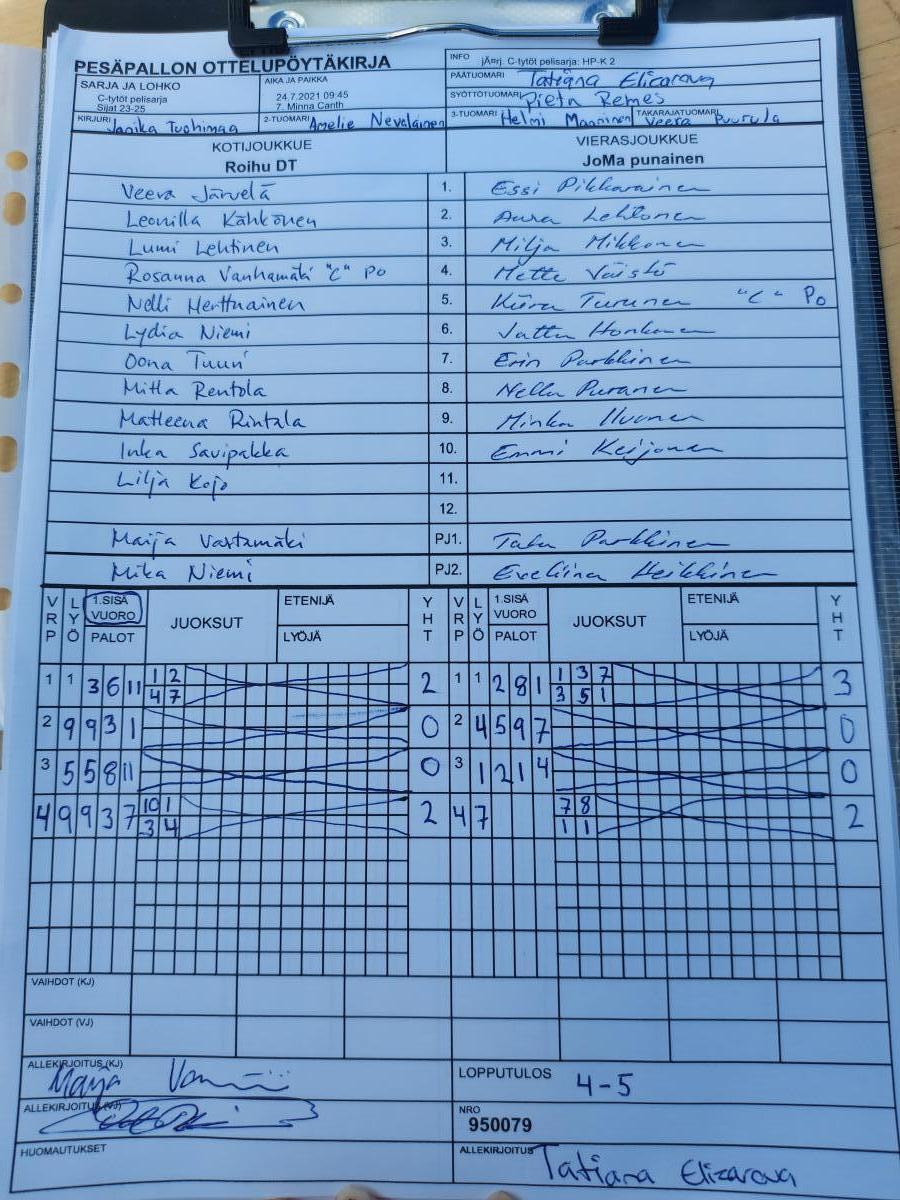 PESÄPALLON OTTELUPÖYTÄKIRJA
INFO jÃ¤rj. C-tytöt pelisarja: HP-K 2
PÄÄTUOMARI Tatiana Elizarova
SARJA JA LOHKO
C-tytöt pelisarja
Sijat 23-25
AIKA JA PAIKKA
24.7.2021 09:45
7. Minna Canth
SYÖTTÖTUOMARI Pieta Remes
KIRJURI Janika Tuohimaa 2-TUOMARI Amelie Nevalainen 3-TUOMARI Helmi Manninen TAKARAJATUOMARI Veera Puurula
KOTIJOUKKUE VIERASJOUKKUE
Roihu DT JoMa punainen
Veera Järvelä 1. Essi Pikkarainen
Leonilla Kähkönen 2. Aura Lehtonen
Lumi Lehtinen 3. Milja Mikkonen
Rosanna Vanhamäki "C" Po 4. Mette Väistö
Nelli Herttuainen 5. Kiira Turunen "C" Po
Lydia Niemi 6. Jattu Honkanen
Oona Tuuri 7. Erin Parkkinen
Mitla Rentola 8. Nella Puranen
Matleena Rintala 9. Minka Iivonen
Inka Savipakka 10. Emmi Keijonen
Lilja Kojo 11.
12.
Maija Vastamäki PJ1. Tatu Parkkinen
Mika Niemi PJ2. Eveliina Heikkinen
VRP LYÖ 1.SISÄ VUORO PALOT JUOKSUT ETENIJÄ LYÖJÄ YHT VRP LYÖ 1.SISÄ VUORO PALOT JUOKSUT ETENIJÄ LYÖJÄ YHT
1 1 3 6 11 1 2 2 1 1 2 8 1 1 3 7 3
4 7 3 5 1
2 9 9 3 1 0 2 4 5 9 7 0
3 5 5 8 11 0 3 1 2 1 4 0
4 9 9 3 7 10 1 2 4 7 7 8 2
3 4 1 1
VAIHDOT (KJ)
VAIHDOT (VJ)
ALLEKIRJOITUS (KJ) Maija LOPPUTULOS 4-5
ALLEKIRJOITUS (VJ) NRO
950079
HUOMAUTUKSET ALLEKIRJOITUS Tatiana Elizarova